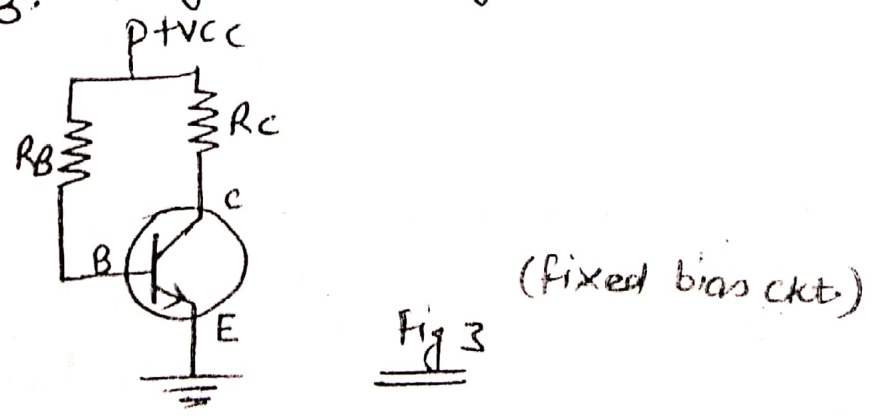 3.
+VCC
RC
RB
C
B
E
(fixed bias ckt.)
Fig 3